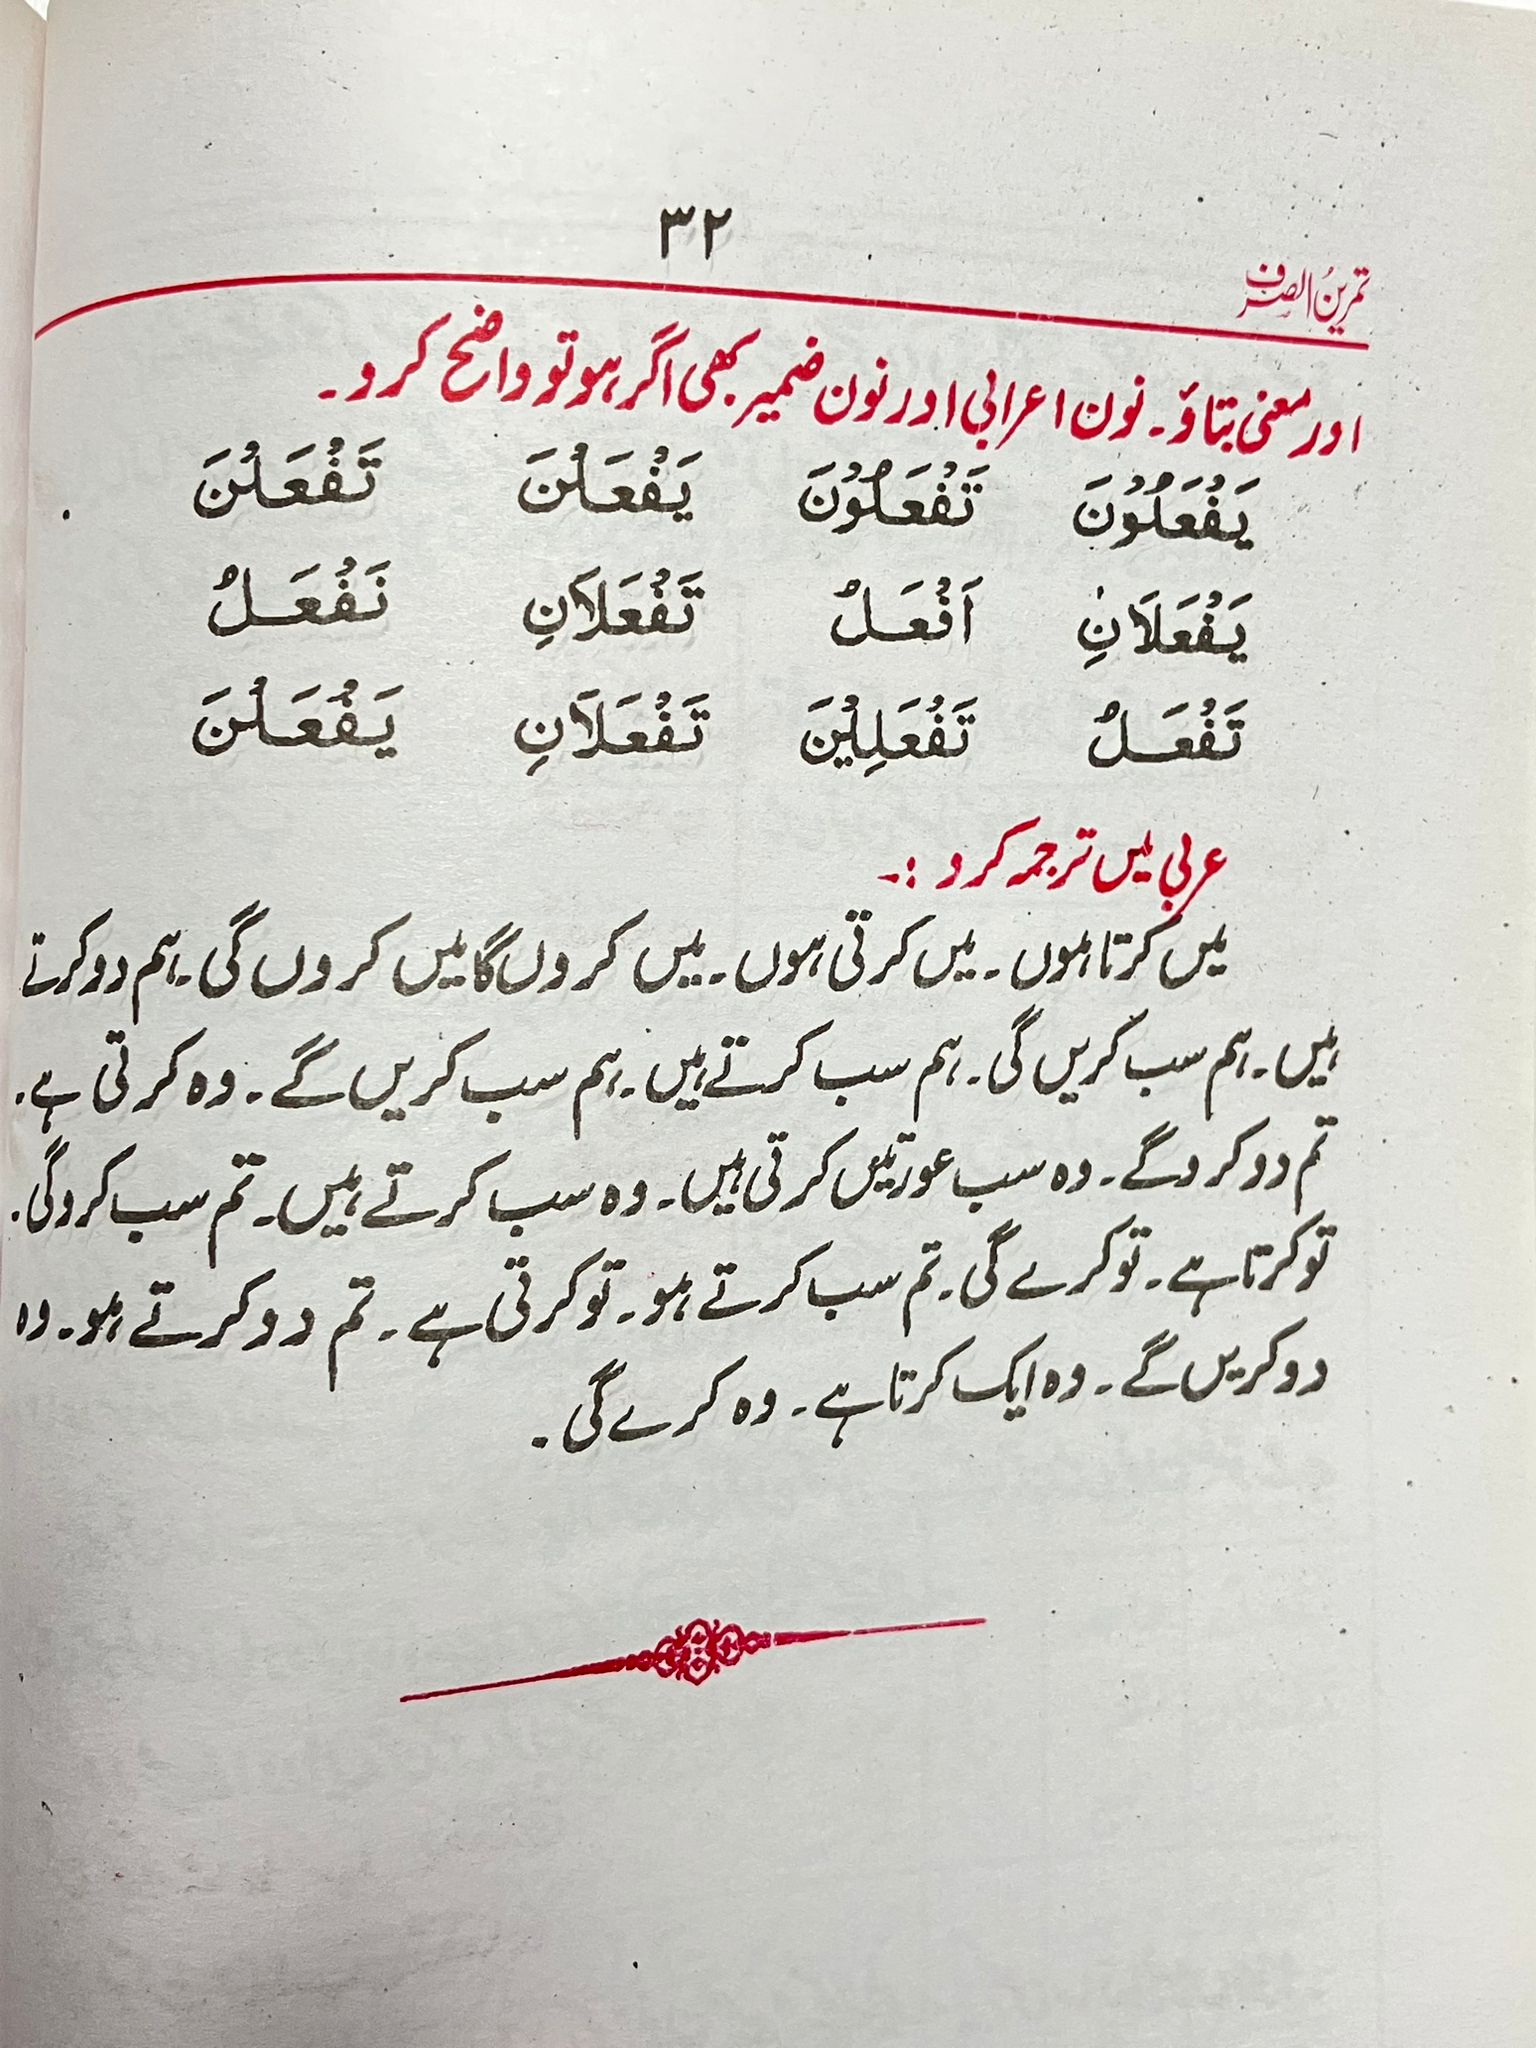 ۳۲
تمرینُ الصرف
اور معنی بتاؤ۔ نون اعرابی اور نون ضمیر بھی اگر ہو تو واضح کرو۔
یَفْعَلُوْنَ تَفْعَلُوْنَ یَفْعَلْنَ تَفْعَلْنَ
یَفْعَلَانِ اَفْعَلُ تَفْعَلَانِ نَفْعَلُ
تَفْعَلُ تَفْعَلِیْنَ تَفْعَلَانِ یَفْعَلْنَ
عربی میں ترجمہ کرو :۔
میں کرتا ہوں۔ میں کرتی ہوں۔ میں کروں گا میں کروں گی۔ ہم دو کرتے
ہیں۔ ہم سب کریں گی۔ ہم سب کرتے ہیں۔ ہم سب کریں گے۔ وہ کرتی ہے۔
تم دو کروگے۔ وہ سب عورتیں کرتی ہیں۔ وہ سب کرتے ہیں۔ تم سب کروگی۔
تو کرتا ہے۔ تو کرے گی۔ تم سب کرتے ہو۔ تو کرتی ہے۔ تم دو کرتے ہو۔ وہ
دو کریں گے۔ وہ ایک کرتا ہے۔ وہ کرے گی۔